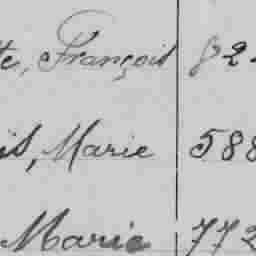 te, François 82
is, Marie 588
Marie 772